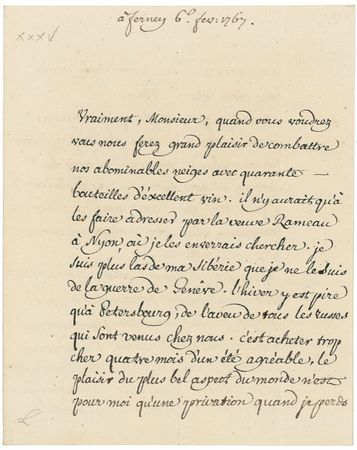 à ferney 6.º fev: 1767.
xxxv
Vraiment, Monsieur, quand vous voudrez
vous nous ferez grand plaisir de combattre
nos abominables neiges avec quarante —
bouteilles d'excellent vin. il n'y aurait qu'à
les faire adresser par la veuve Rameau
à Nyon, où je les enverrais chercher. je
suis plus las de ma Sibérie que je ne le suis
de la guerre de Genêve. l'hiver y est pire
qu'à Petersbourg, de l'aveu de tous les russes
qui sont venus chez nous. c'est acheter trop
cher quatre mois d'un été agréable, le
plaisir du plus bel aspect du monde n'est
pour moi qu'une privation quand je perds